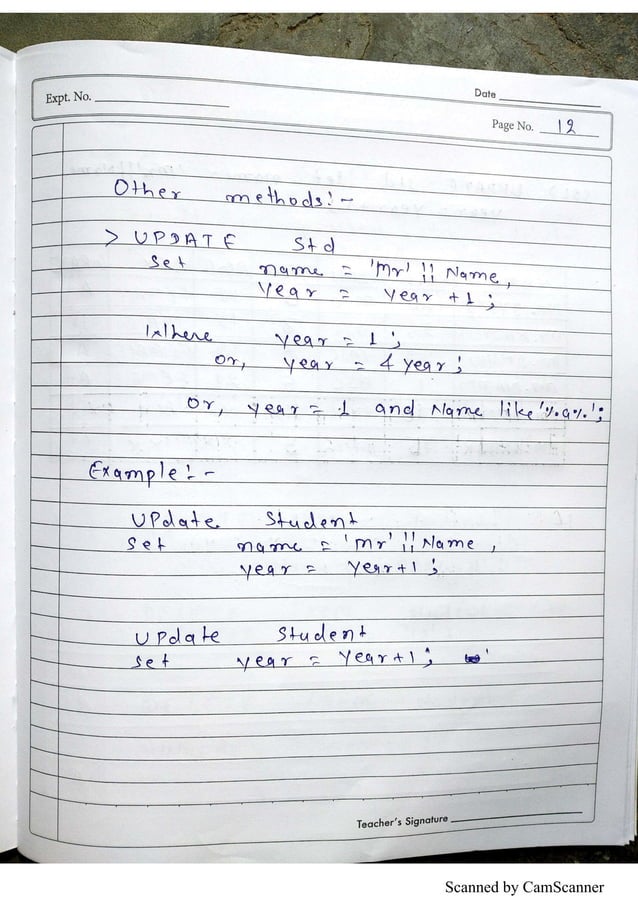 Expt. No.
Date
Page No. 12
Other methods:-
> UPDATE Std
Set name = 'Mr' || Name,
Year = year +1;
Where year = 1;
or, year = 4 year;
Or, year = 1 and Name like '%a%';
Example:-
UPdate Student
Set name = 'Mr' || Name,
year = year+1;
UPdate Student
set year = Year+1;
Teacher's Signature
Scanned by CamScanner